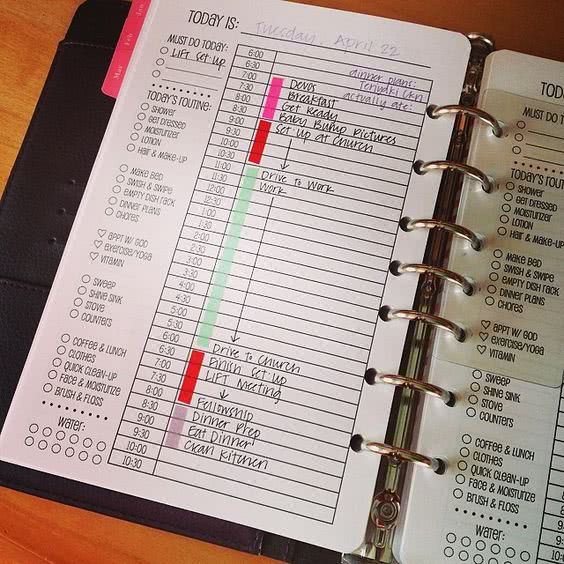 Jan
Feb
Mar
TODAY IS: Tuesday, April 22
MUST DO TODAY:
LIFT Set Up
TODAY'S ROUTINE:
SHOWER
GET DRESSED
MOISTURIZER
LOTION
HAIR & MAKE-UP
MAKE BED
SWISH & SWIPE
EMPTY DISH RACK
DINNER PLANS
CHORES
APPT W/ GOD
EXERCISE/YOGA
VITAMIN
SWEEP
SHINE SINK
STOVE
COUNTERS
COFFEE & LUNCH
CLOTHES
QUICK CLEAN-UP
FACE & MOISTURIZE
BRUSH & FLOSS
WATER:
6:00
6:30
7:00
7:30
8:00
8:30
9:00
9:30
10:00
10:30
11:00
11:30
12:00
12:30
1:00
1:30
2:00
2:30
3:00
3:30
4:00
4:30
5:00
5:30
6:00
6:30
7:00
7:30
8:00
8:30
9:00
9:30
10:00
10:30
dinner plans:
Teriyaki Ckn
actually ate:
Devos
Breakfast
Get Ready
Baby Bump Pictures
Set Up at Church
Drive to Work
Work
Drive to Church
Finish Set Up
LIFT Meeting
Fellowship
Dinner Prep
Eat Dinner!
Clean Kitchen
TODA
MUST DO TODAY:
TODAY'S ROUTINE:
SHOWER
GET DRESSED
MOISTURIZER
LOTION
HAIR & MAKE-U
MAKE BED
SWISH & SWIPE
EMPTY DISH RACK
DINNER PLANS
CHORES
APPT W/ GOD
EXERCISE/YOGA
VITAMIN
SWEEP
SHINE SINK
STOVE
COUNTERS
COFFEE & LUNCH
CLOTHES
QUICK CLEAN-UP
FACE & MOISTURIZE
BRUSH & FLOSS
WATER: